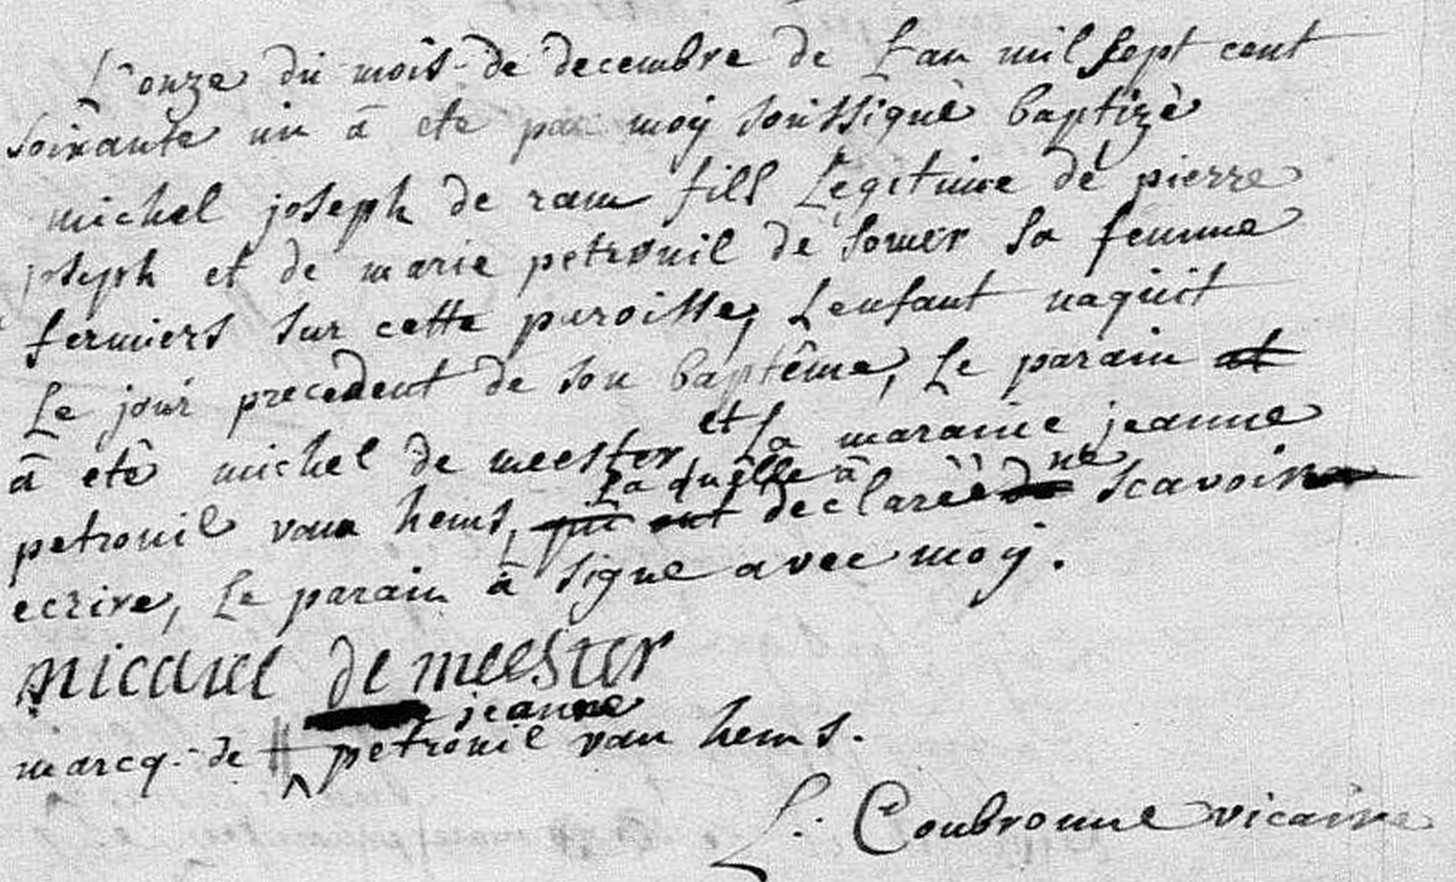 L'onze du mois de decembre de L'an mil sept cent
soixante un â eté par moÿ soussigné baptizé
michel joseph de ram fill Legitime de pierre
joseph et de marie petronil de somer sa femme
fermiers sur cette paroisse, L'enfant naquit
Le jour precedent de son baptême, Le parain et
â eté michel de meester, et La maraine jeanne
petronil van hems, qui ont Laquelle â declarée de ne scavoir
ecrire, Le parain â signe avec moÿ.
micaiel de meester
jeanne
marcq de petronil van hems.
L. Coubronne vicaire